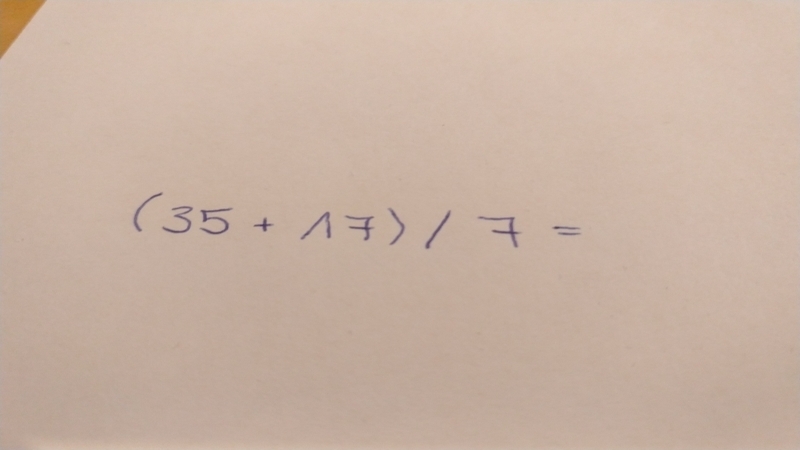 (35 + 17) / 7 =